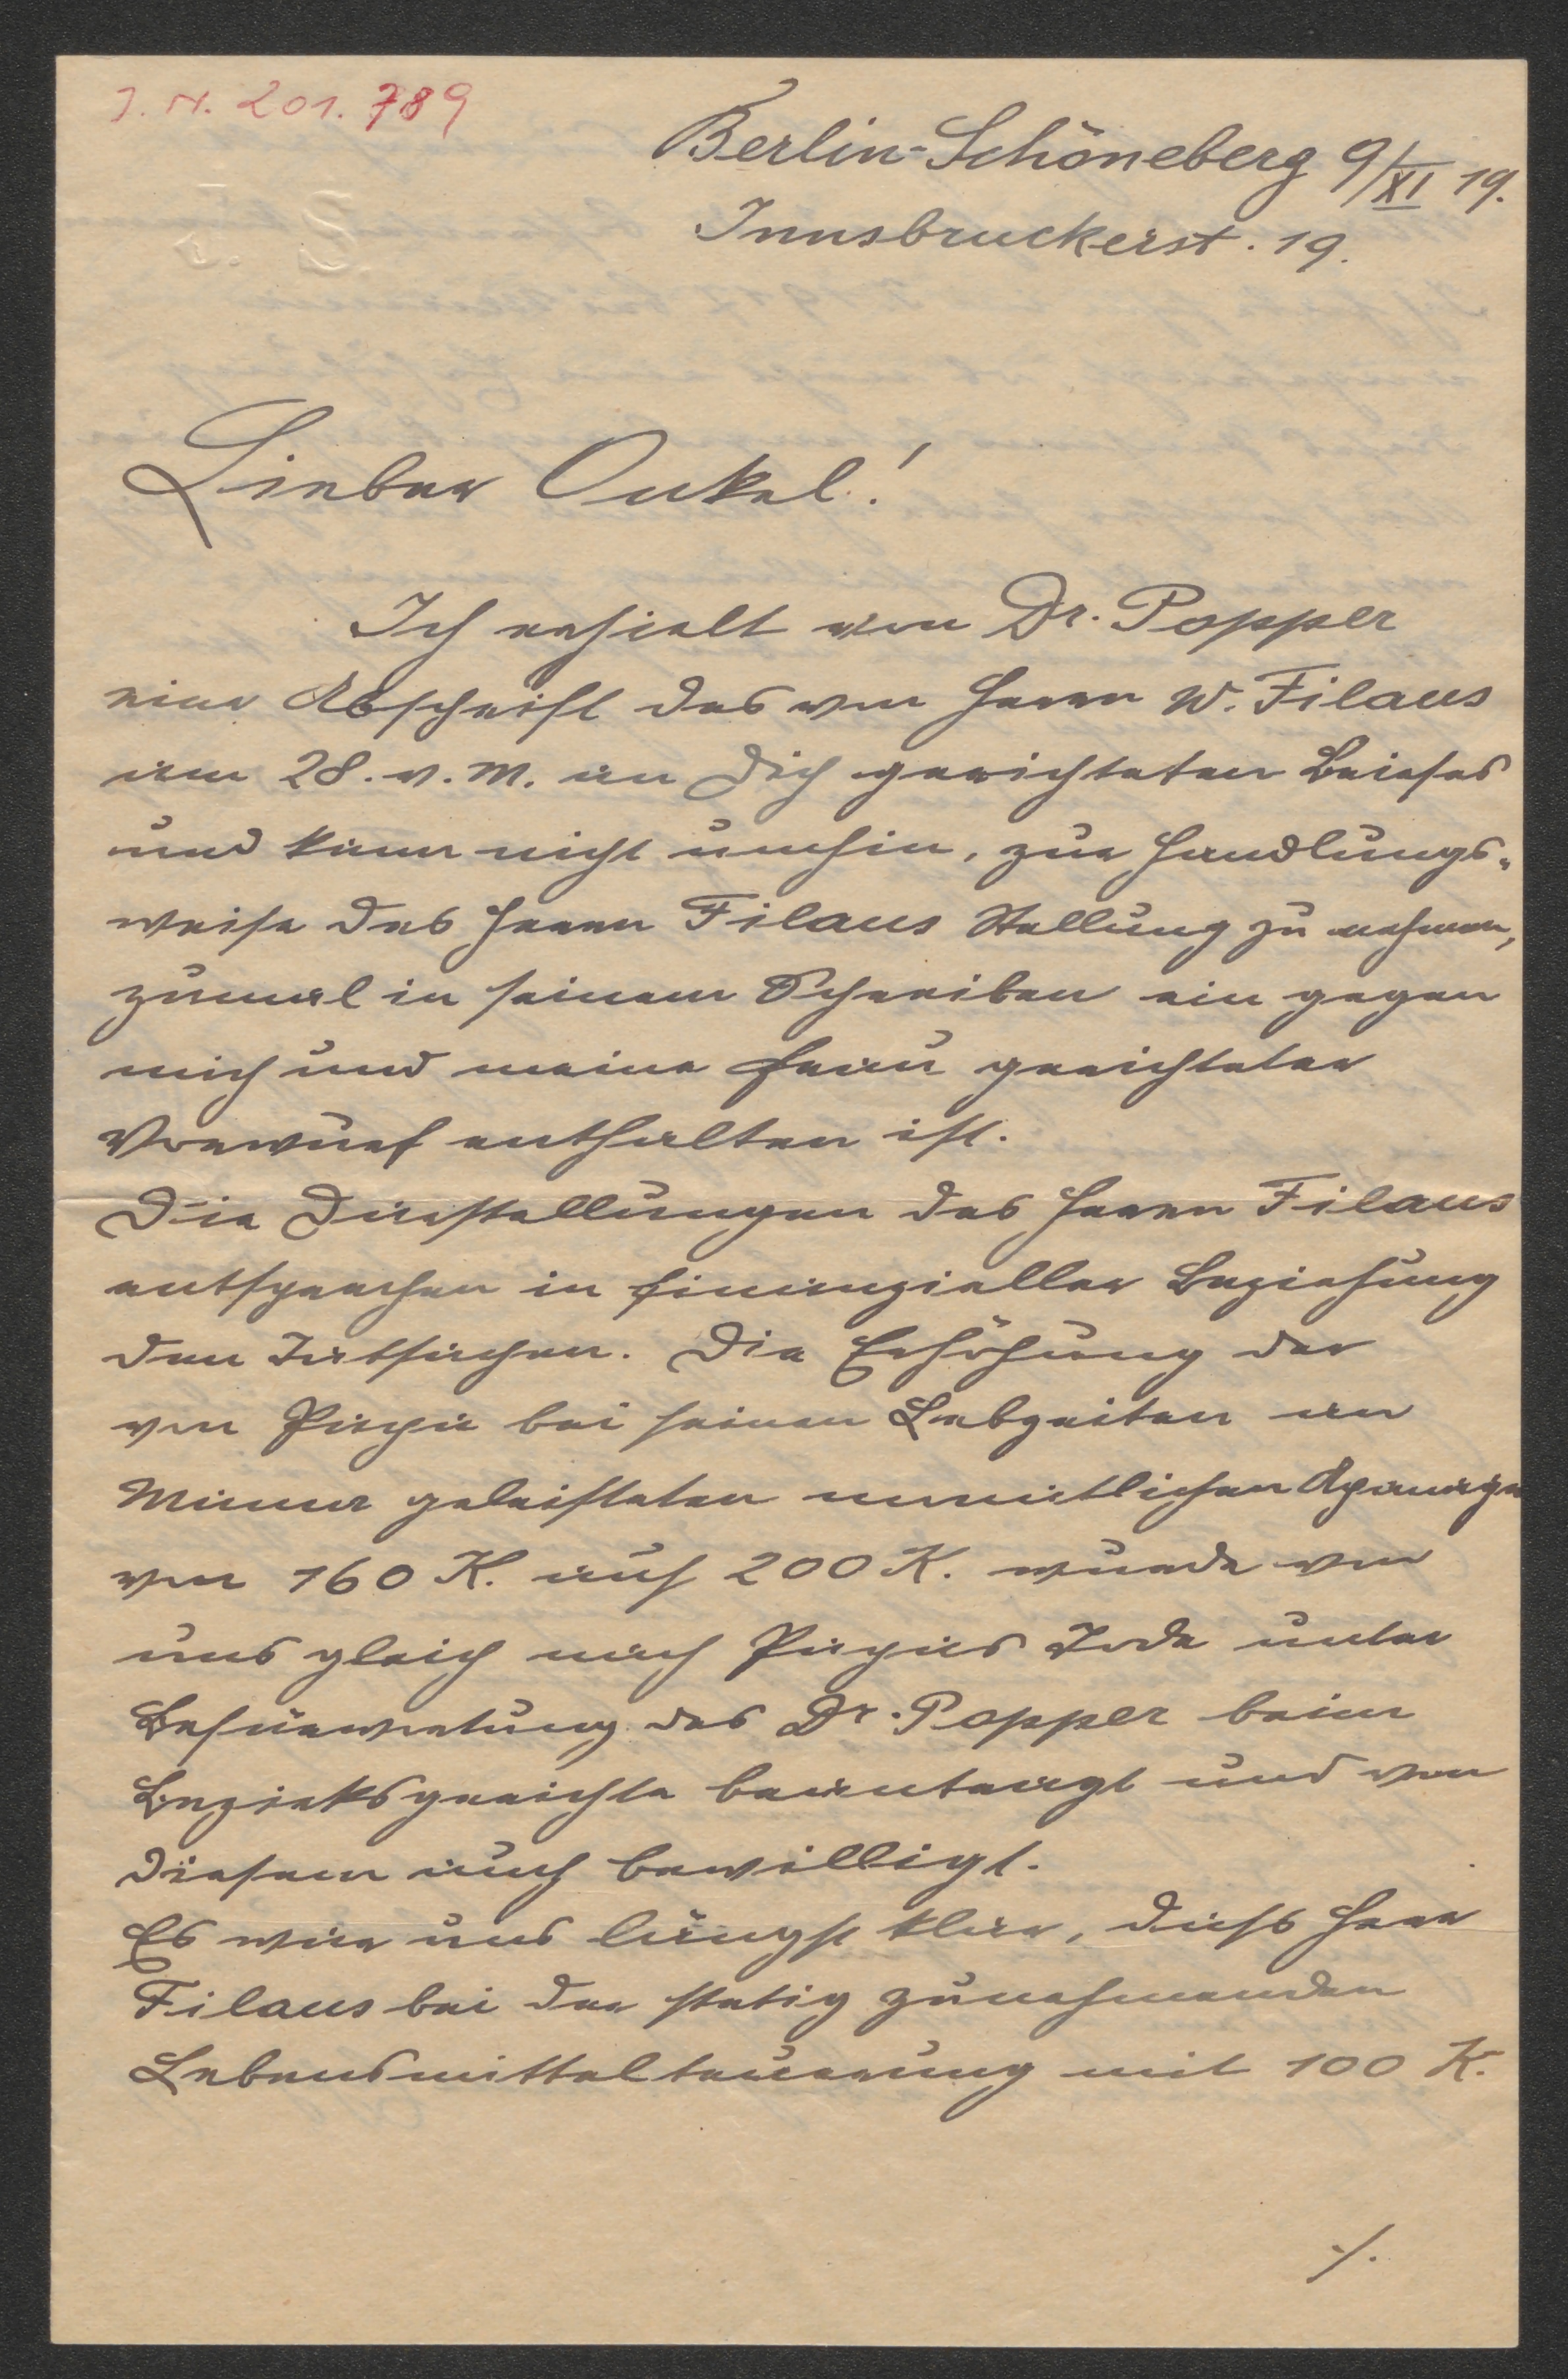 J. N. 201.789
Berlin-Schöneberg 9/XI 19.
Innsbruckerst. 19.
J. S.
Lieber Onkel!
Ich erhielt von Dr. Popper
eine Abschrift des von Herrn W. Filaus
am 28. v. M. an Dich gerichteten Briefes
und kann nicht umhin, zur Handlungs-
weise des Herrn Filaus Stellung zu nehmen,
zumal in seinem Schreiben ein gegen
mich und meine Frau gerichteter
Vorwurf enthalten ist.
Die Darstellungen des Herrn Filaus
entsprechen in finanzieller Beziehung
den Tatsachen. Die Erhöhung der
von Papa bei seinen Lebzeiten an
Mama geleisteten monatlichen Apanage
von 160 K. auf 200 K. wurde von
uns gleich nach Papas Tode unter
Befürwortung des Dr. Popper beim
Bezirksgerichte beantragt und von
diesem auch bewilligt.
Es war uns längst klar, dass Herr
Filaus bei der stetig zunehmenden
Lebensmittelteuerung mit 100 K.
./.